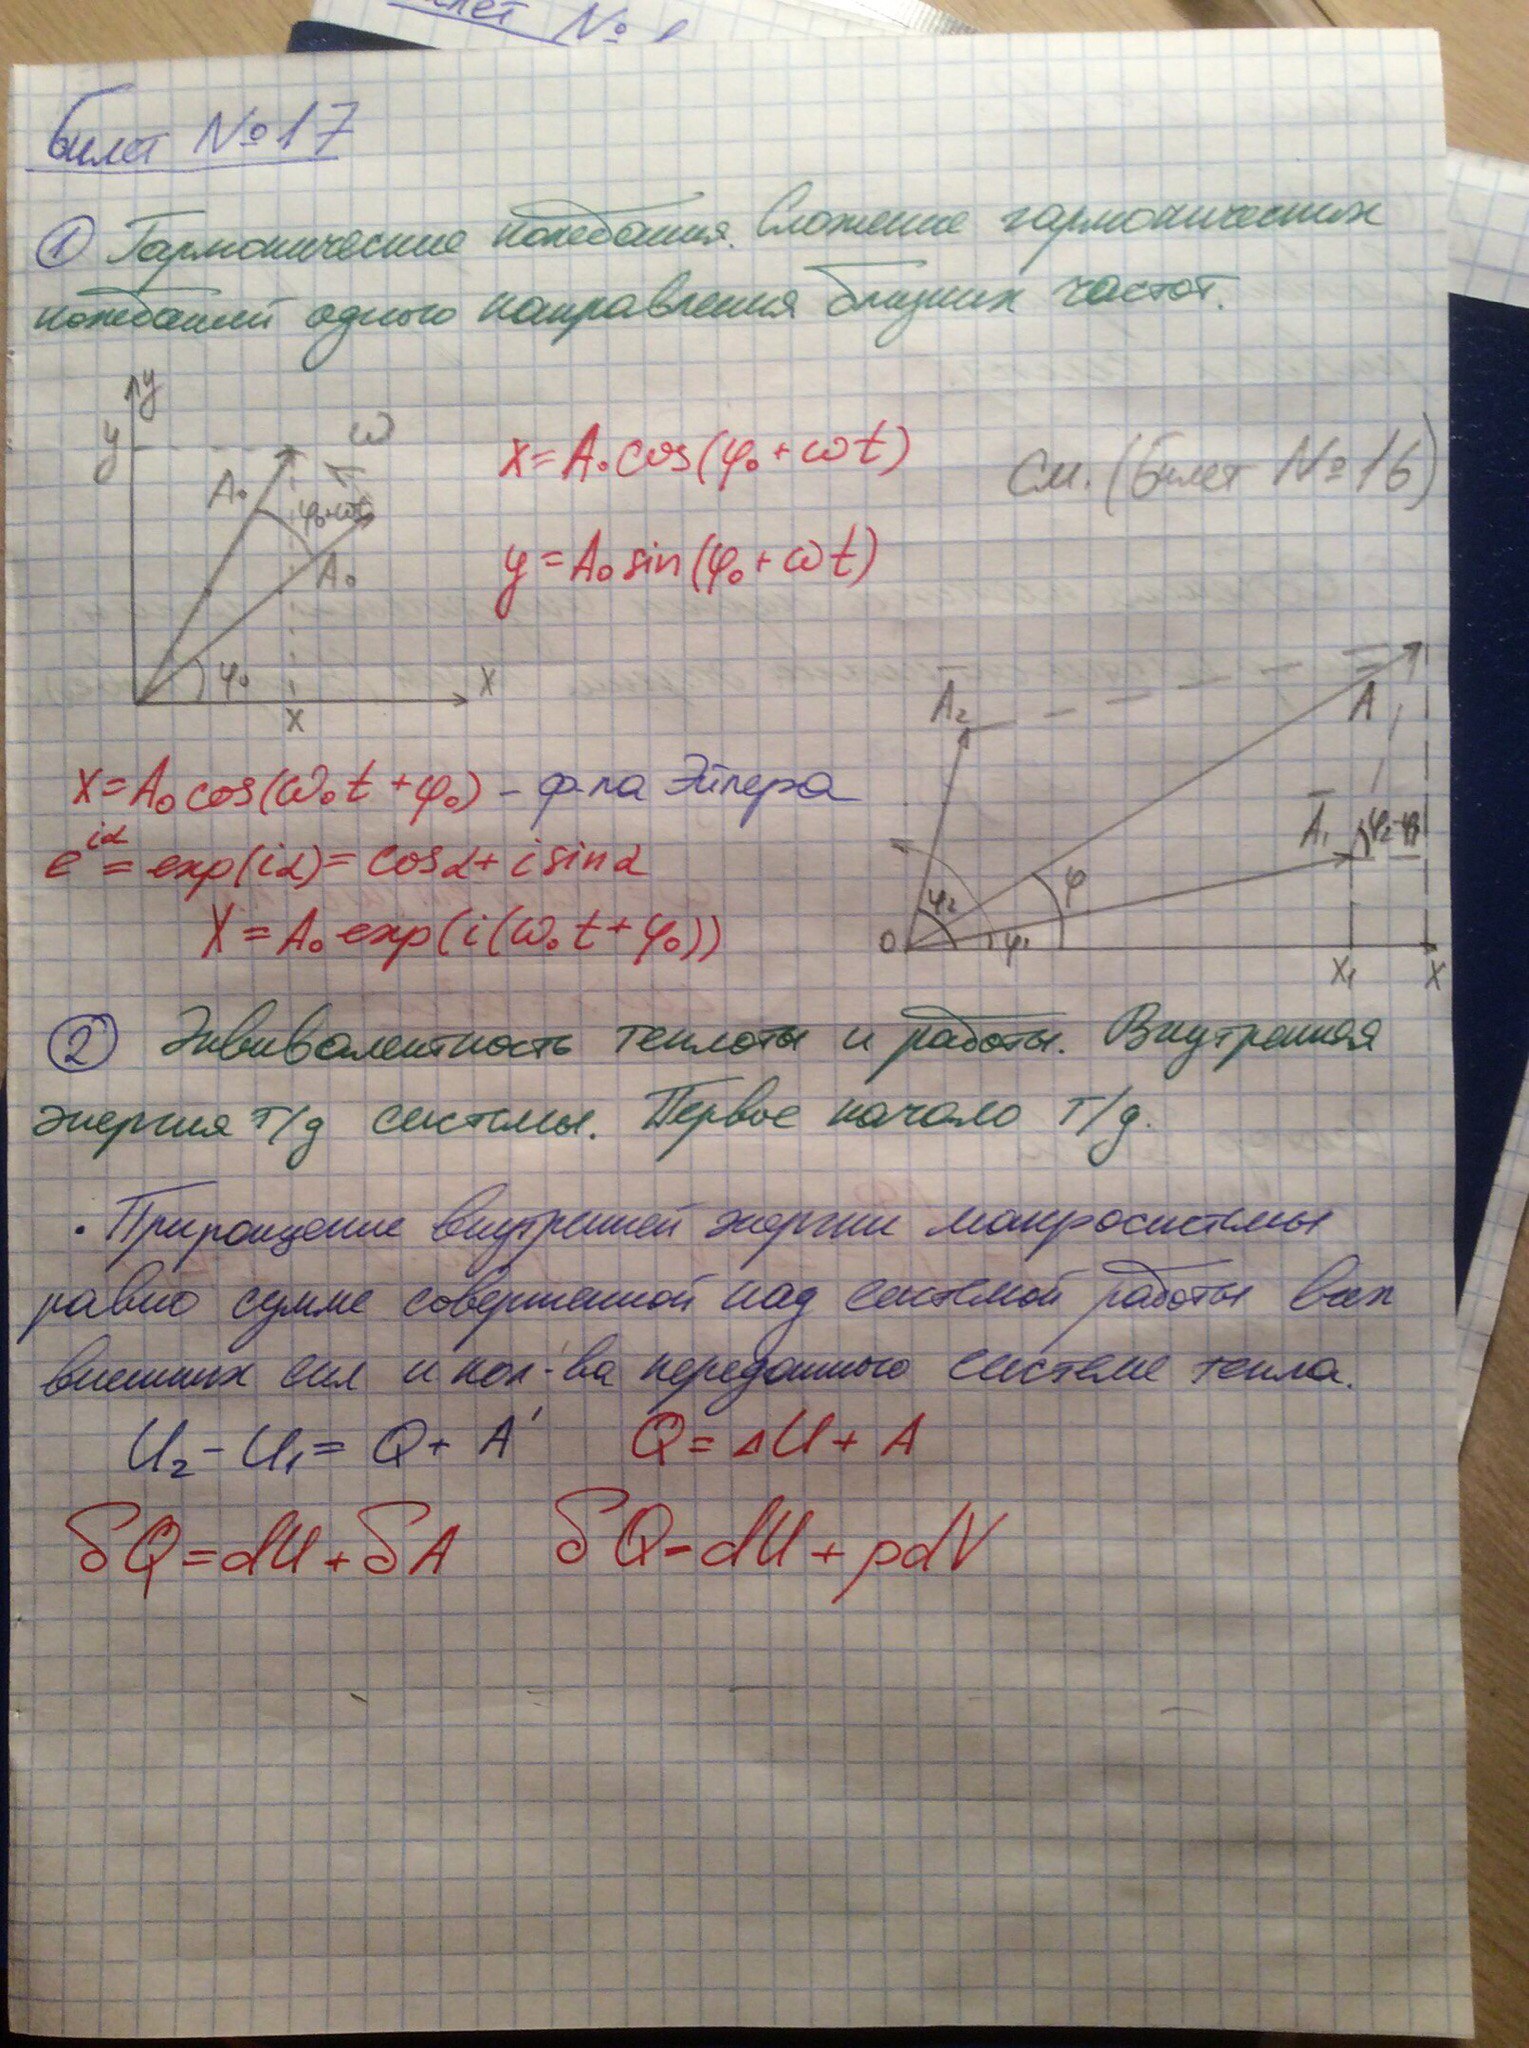 Билет №
Билет №17
① Гармонические колебания. Сложение гармонических
колебаний одного направления близких частот.
y
y
ω
A₀
φ₀+ωt
A₀
φ₀
x
x
x = A₀ cos(φ₀ + ωt)
y = A₀ sin(φ₀ + ωt)
См. (Билет №16)
A₂
A
A₁
φ₂-φ₁
φ₂
φ
φ₁
O
x₁
x
x = A₀ cos(ω₀t + φ₀) – ф-ла Эйлера
e^{iα} = exp(iα) = cosα + i sinα
X = A₀ exp(i(ω₀t + φ₀))
② Эквивалентность теплоты и работы. Внутренняя
энергия т/д системы. Первое начало т/д.
• Приращение внутренней энергии макросистемы
равно сумме совершенной над системой работы всех
внешних сил и кол-ва переданного системе тепла.
U₂ - U₁ = Q + A' Q = ΔU + A
δQ = dU + δA δQ = dU + pdV